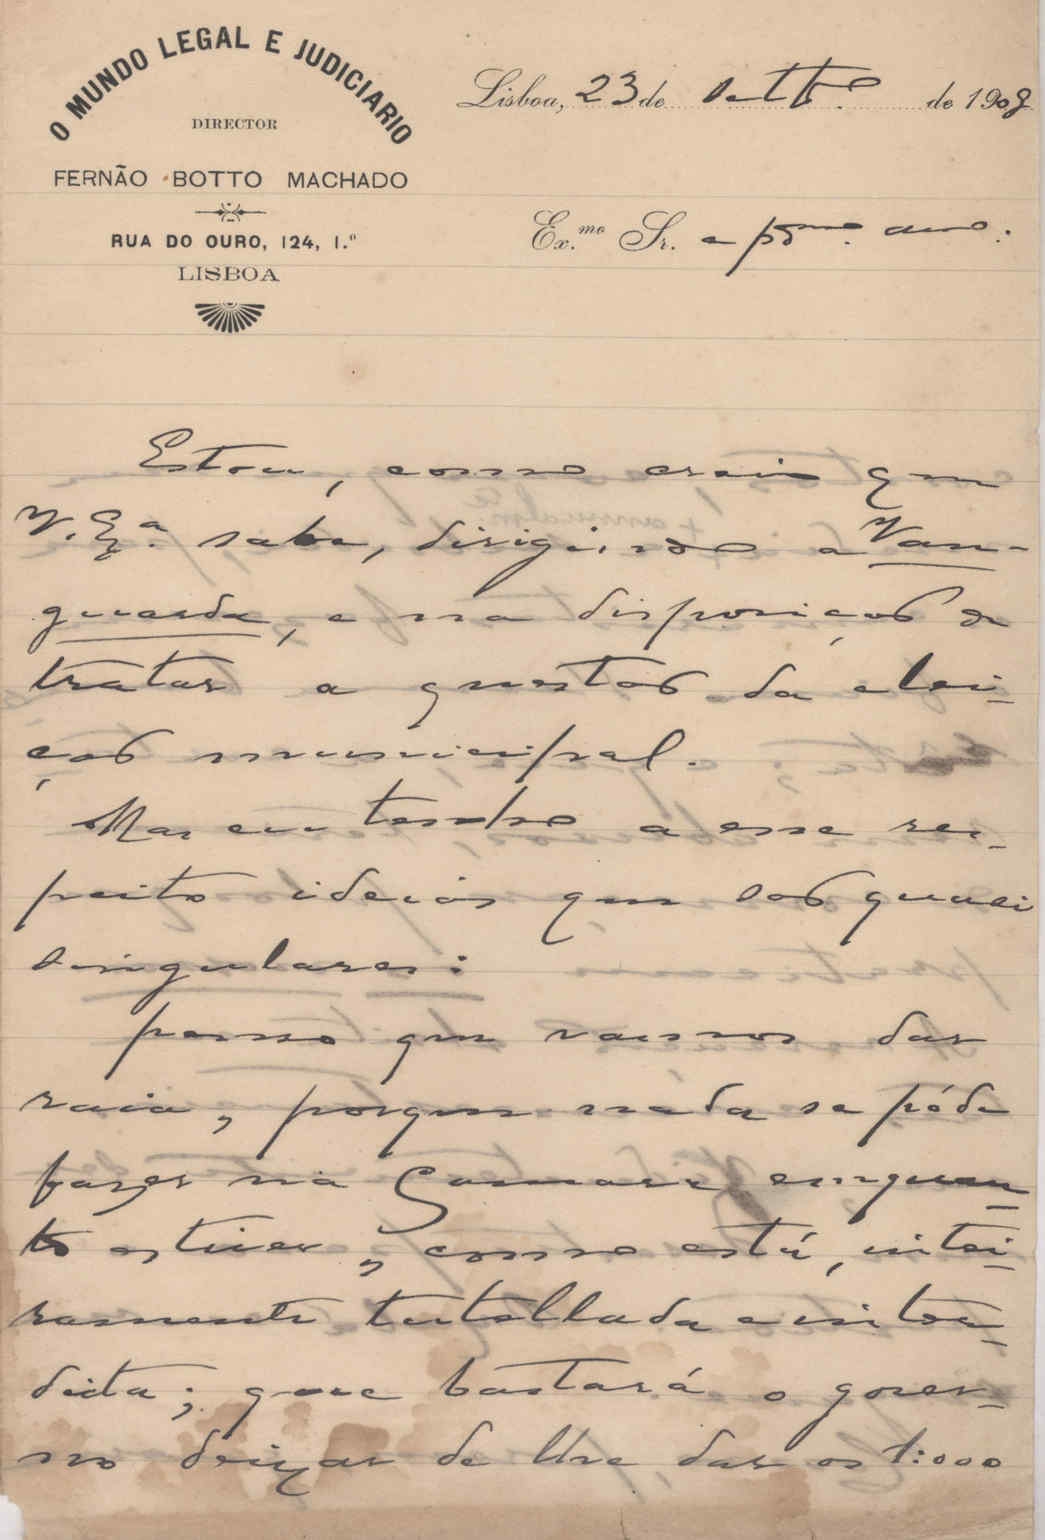 O MUNDO LEGAL E JUDICIARIO
DIRECTOR
FERNÃO BOTTO MACHADO
RUA DO OURO, 124, 1.º
LISBOA
Lisboa, 23 de Settb.º de 1908
Ex.mo Sr. e pr.mo amo.
Estou, como creio que
V. Ex.ª sabe, dirigindo a Van-
guarda, e na disposição de
tratar a questão da elei-
ção municipal.
Mas eu tenho a esse res-
peito ideias que são quasi
singulares:
penso que vamos dar
raia, porque nada se póde
fazer na Camara emquan-
to estiver, como está, intei-
ramente tutellada e inter-
dicta; que bastará o gover-
no deixar de lhe dar os 1:000